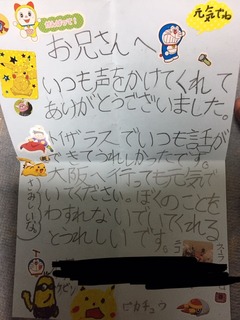 がんばって!
元気でね
お兄さんへ
いつも声をかけてくれて
ありがとうございました。
トイザラスでいつも話が
できてうれしかったです。
大阪へ行っても元気で
いてください。ぼくのことを
わすれないでいてくれる
とうれしいです。
さみしいな
ケビン
ピカチュウ